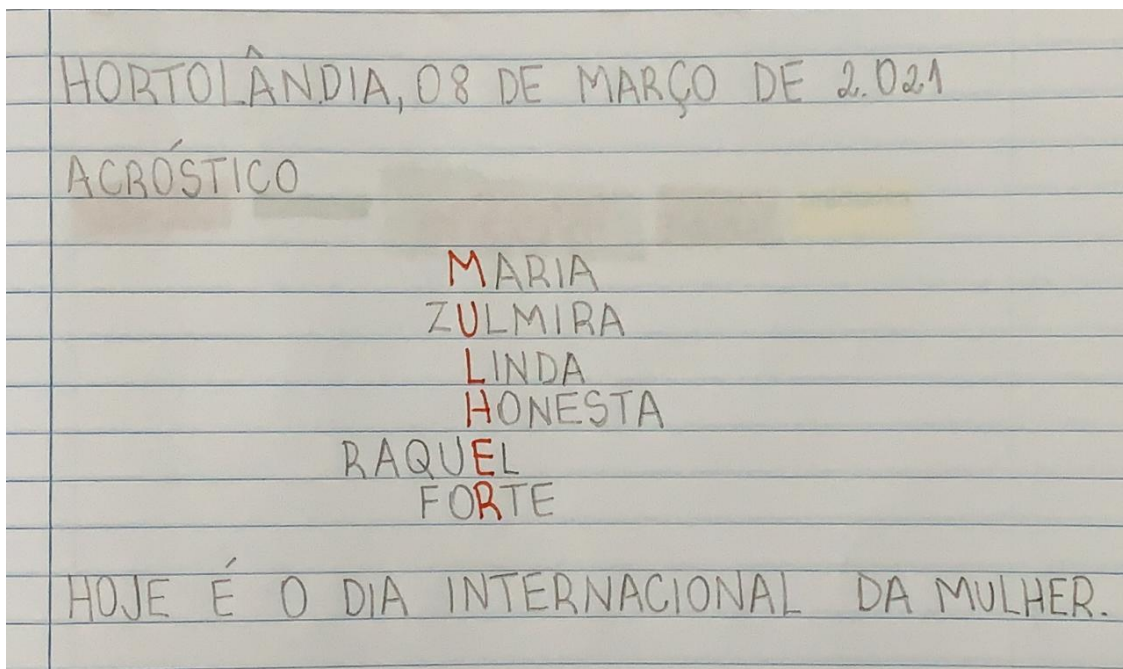 HORTOLÂNDIA, 08 DE MARÇO DE 2.021
ACRÓSTICO
MARIA
ZULMIRA
LINDA
HONESTA
RAQUEL
FORTE
HOJE É O DIA INTERNACIONAL DA MULHER.